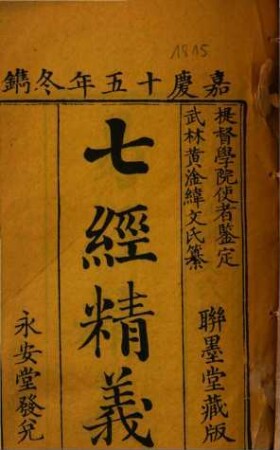 1815
嘉慶十五年冬鐫
提督學院使者鑒定
武林黃淦緯文氏纂
聯墨堂藏版
七經精義
永安堂發兌